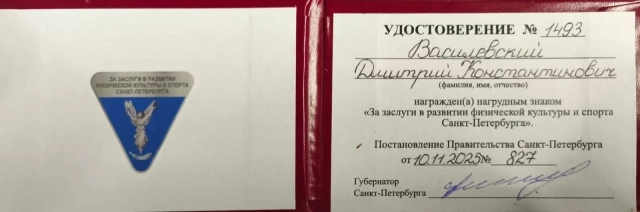 ЗА ЗАСЛУГИ В РАЗВИТИИ
ФИЗИЧЕСКОЙ КУЛЬТУРЫ И СПОРТА
САНКТ-ПЕТЕРБУРГА
УДОСТОВЕРЕНИЕ № 1493
Василевский
Дмитрий Константинович
(фамилия, имя, отчество)
награжден(а) нагрудным знаком
«За заслуги в развитии физической культуры и спорта
Санкт-Петербурга».
Постановление Правительства Санкт-Петербурга
от 10.11.2025 № 827
Губернатор
Санкт-Петербурга